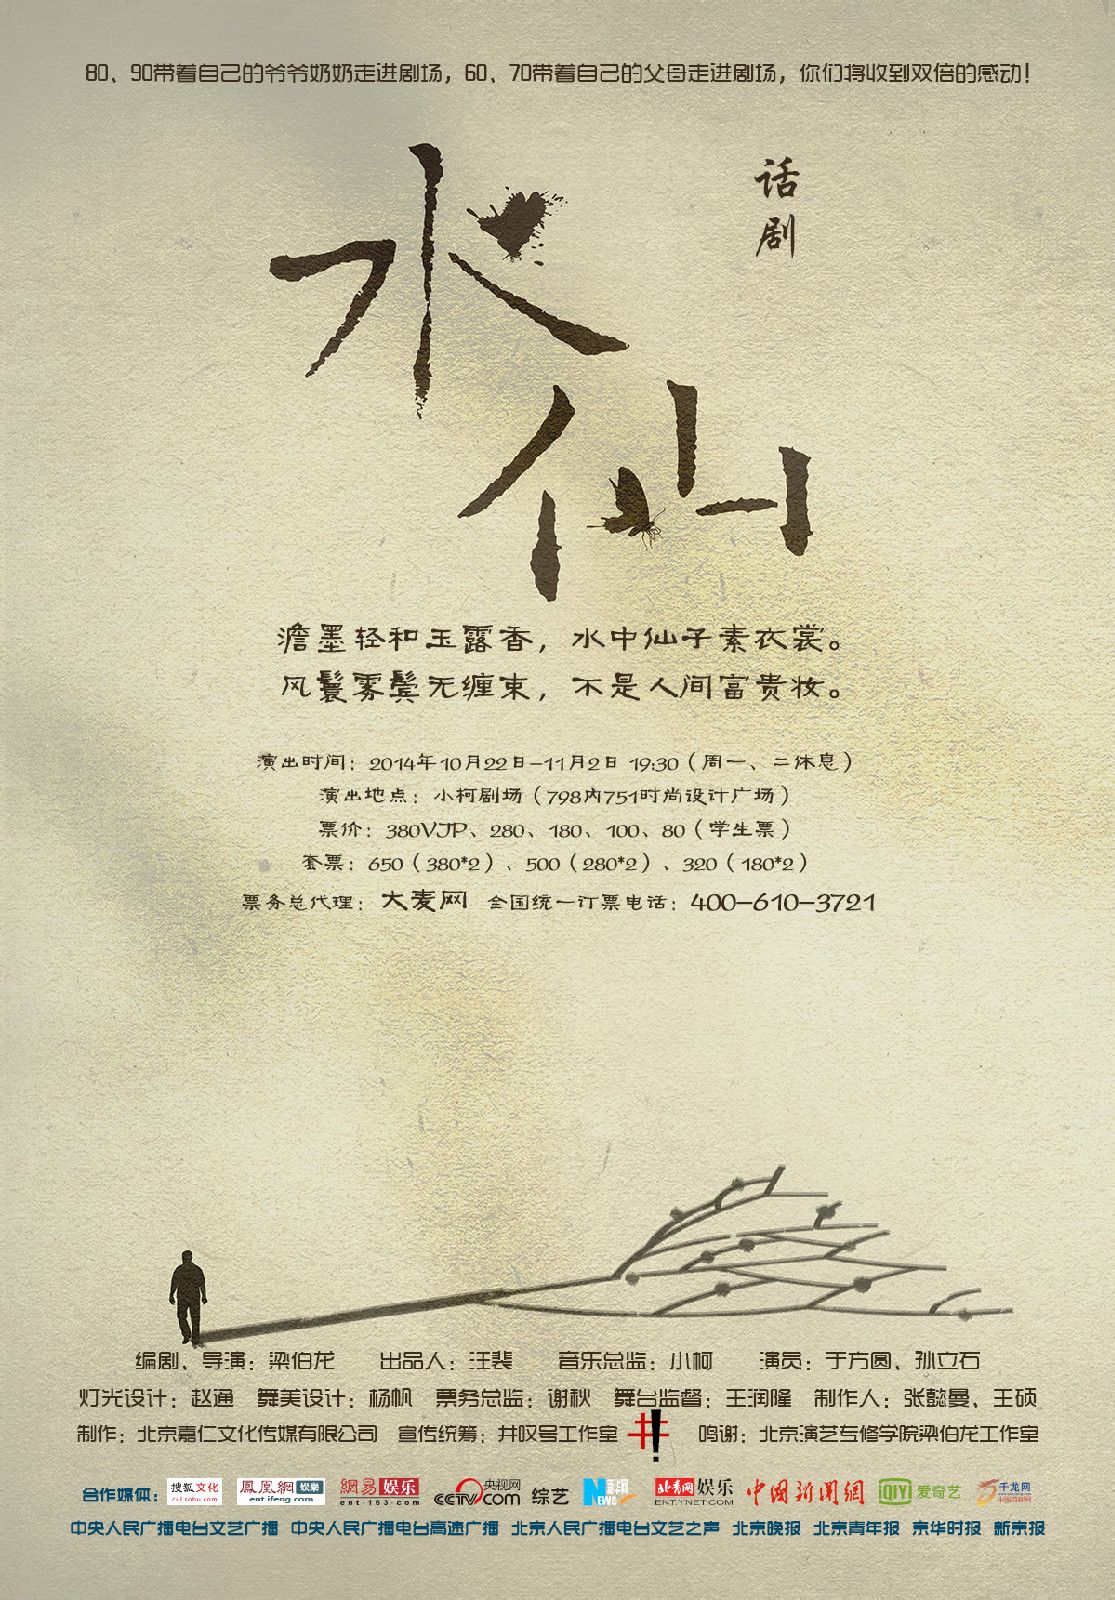 80、90带着自己的爷爷奶奶走进剧场，60、70带着自己的父母走进剧场，你们将收到双倍的感动！
话剧
水仙
澹墨轻和玉露香，水中仙子素衣裳。
风鬟雾鬓无缠束，不是人间富贵妆。
演出时间：2014年10月22日-11月2日 19:30（周一、二休息）
演出地点：小柯剧场（798内751时尚设计广场）
票价：380VJP、280、180、100、80（学生票）
套票：650（380*2）、500（280*2）、320（180*2）
票务总代理：大麦网 全国统一订票电话：400-610-3721
编剧、导演：梁伯龙 出品人：汪裴 音乐总监：小柯 演员：于方圆、孙立石
灯光设计：赵通 舞美设计：杨帆 票务总监：谢秋 舞台监督：王润隆 制作人：张懿曼、王硕
制作：北京嘉仁文化传媒有限公司 宣传统筹：井叹号工作室 井! 鸣谢：北京演艺专修学院梁伯龙工作室
合作媒体：搜狐文化 cul.sohu.com 鳳凰網 娛樂 ent.ifeng.com 網易 娱乐 ent·163·com 央视网 CCTV.com 综艺 新华网 NEWS 北青网 娱乐 ENT.YNET.COM 中國新聞網 QIYI 爱奇艺 千龙网 中国首都网
中央人民广播电台文艺广播 中央人民广播电台高速广播 北京人民广播电台文艺之声 北京晚报 北京青年报 京华时报 新京报